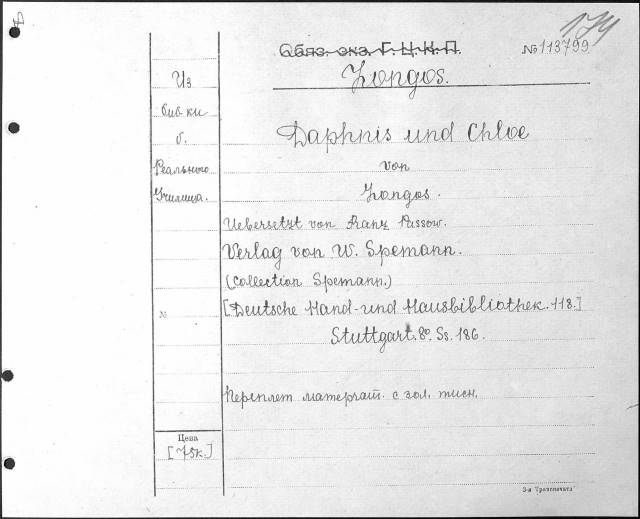 174
Обяз. экз. Г. Ц. К. П. №113799
Longos.
Из
биб-ки
б.
Реального
Училища.
Daphnis und Chloe
von
Longos.
Uebersetzt von Franz Passow.
Verlag von W. Spemann.
(Collection Spemann.)
[Deutsche Hand- und Hausbibliothek. 118.]
№
Stuttgart. 8º. Ss. 186.
Переплет материат. с зол. тисн.
Цена
[75к.]
3-я